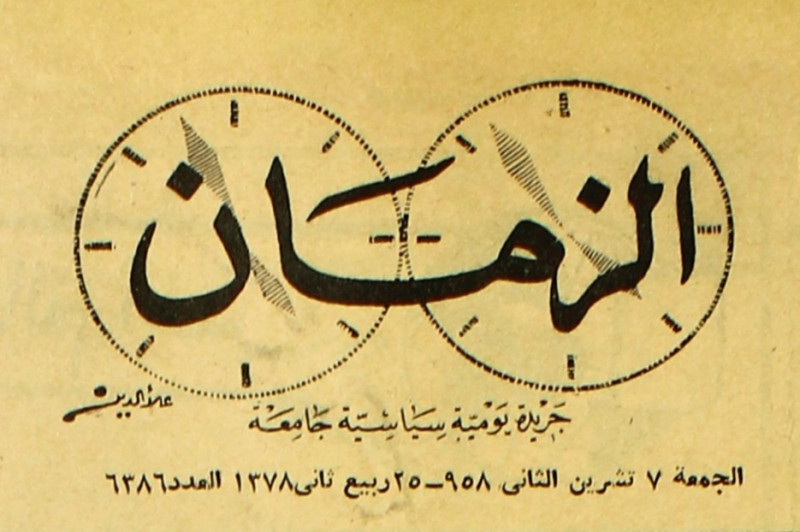 الزمان
علاء الدين
جريدة يومية سياسية جامعة
الجمعة ٧ تشرين الثانى ٩٥٨ – ٢٥ ربيع ثانى ١٣٧٨ العدد ٦٣٨٦